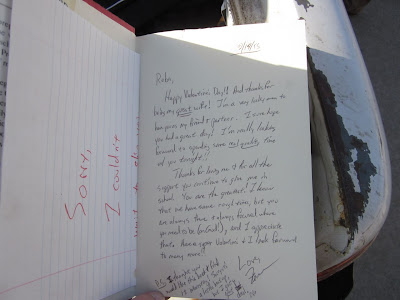 SORRY,
I couldn't
2/14/13
Robs,
Happy Valentine's Day!! And thanks for
being my great wife! I'm a very lucky man to
have you as my friend & partner. I sure hope
you had a great day! I'm really looking
forward to spending some real quality time
w/ you tonight!!
Thanks for loving me & for all the
support you continue to give me in
school. You are the greatest! I know
that we have some rough times, but you
are always there & always focused where
you need to be (on God!), and I appreciate
that. Have a great Valentine's & I look forward
to many more!!
Love,
P.S. I thought you